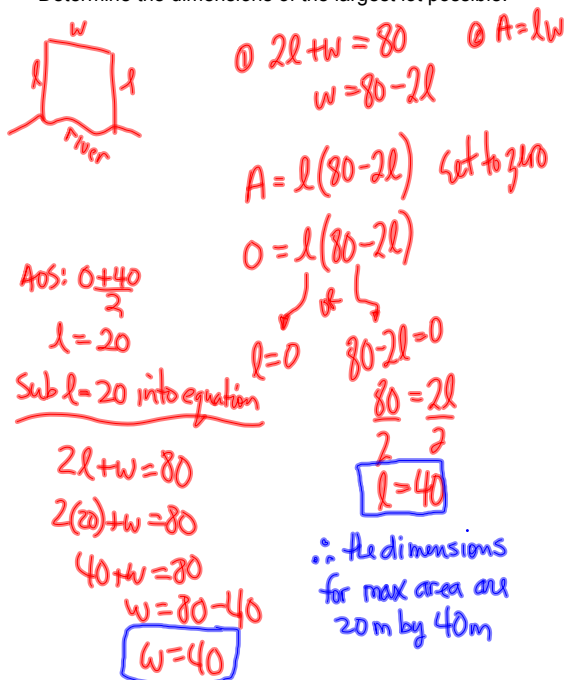 Determine the dimensions of the largest lot possible.
w
l
l
river
① 2l+w=80
② A=lw
w=80-2l
A=l(80-2l) Set to zero
0=l(80-2l)
or
l=0
80-2l=0
80/2 = 2l/2
l=40
AOS: 0+40/2
l=20
Sub l=20 into equation
2l+w=80
2(20)+w=80
40+w=80
w=80-40
w=40
∴ the dimensions
for max area are
20m by 40m